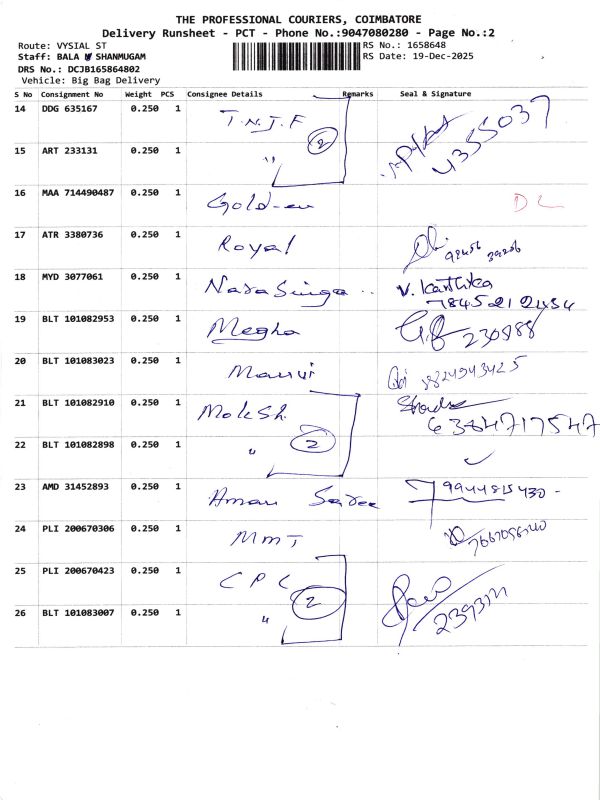 THE PROFESSIONAL COURIERS, COIMBATORE
Delivery Runsheet - PCT - Phone No.:9047080280 - Page No.:2
Route: VYSIAL ST RS No.: 1658648
Staff: BALA SHANMUGAM RS Date: 19-Dec-2025
DRS No.: DCJB165864802
Vehicle: Big Bag Delivery
S No Consignment No Weight PCS Consignee Details Remarks Seal & Signature
14 DDG 635167 0.250 1 T.N.J.F 2 4355037
15 ART 233131 0.250 1 "
16 MAA 714490487 0.250 1 DL
17 ATR 3380736 0.250 1 Royal
18 MYD 3077061 0.250 1 Nara Singa .. V. Karthika
7845212454
19 BLT 101082953 0.250 1 Megha 230888
20 BLT 101083023 0.250 1
21 BLT 101082910 0.250 1 Moksh. 2
6384717547
22 BLT 101082898 0.250 1 " ✓
23 AMD 31452893 0.250 1 Aman 9944815430 -
24 PLI 200670306 0.250 1 MMT
25 PLI 200670423 0.250 1 CPC 2
26 BLT 101083007 0.250 1 "